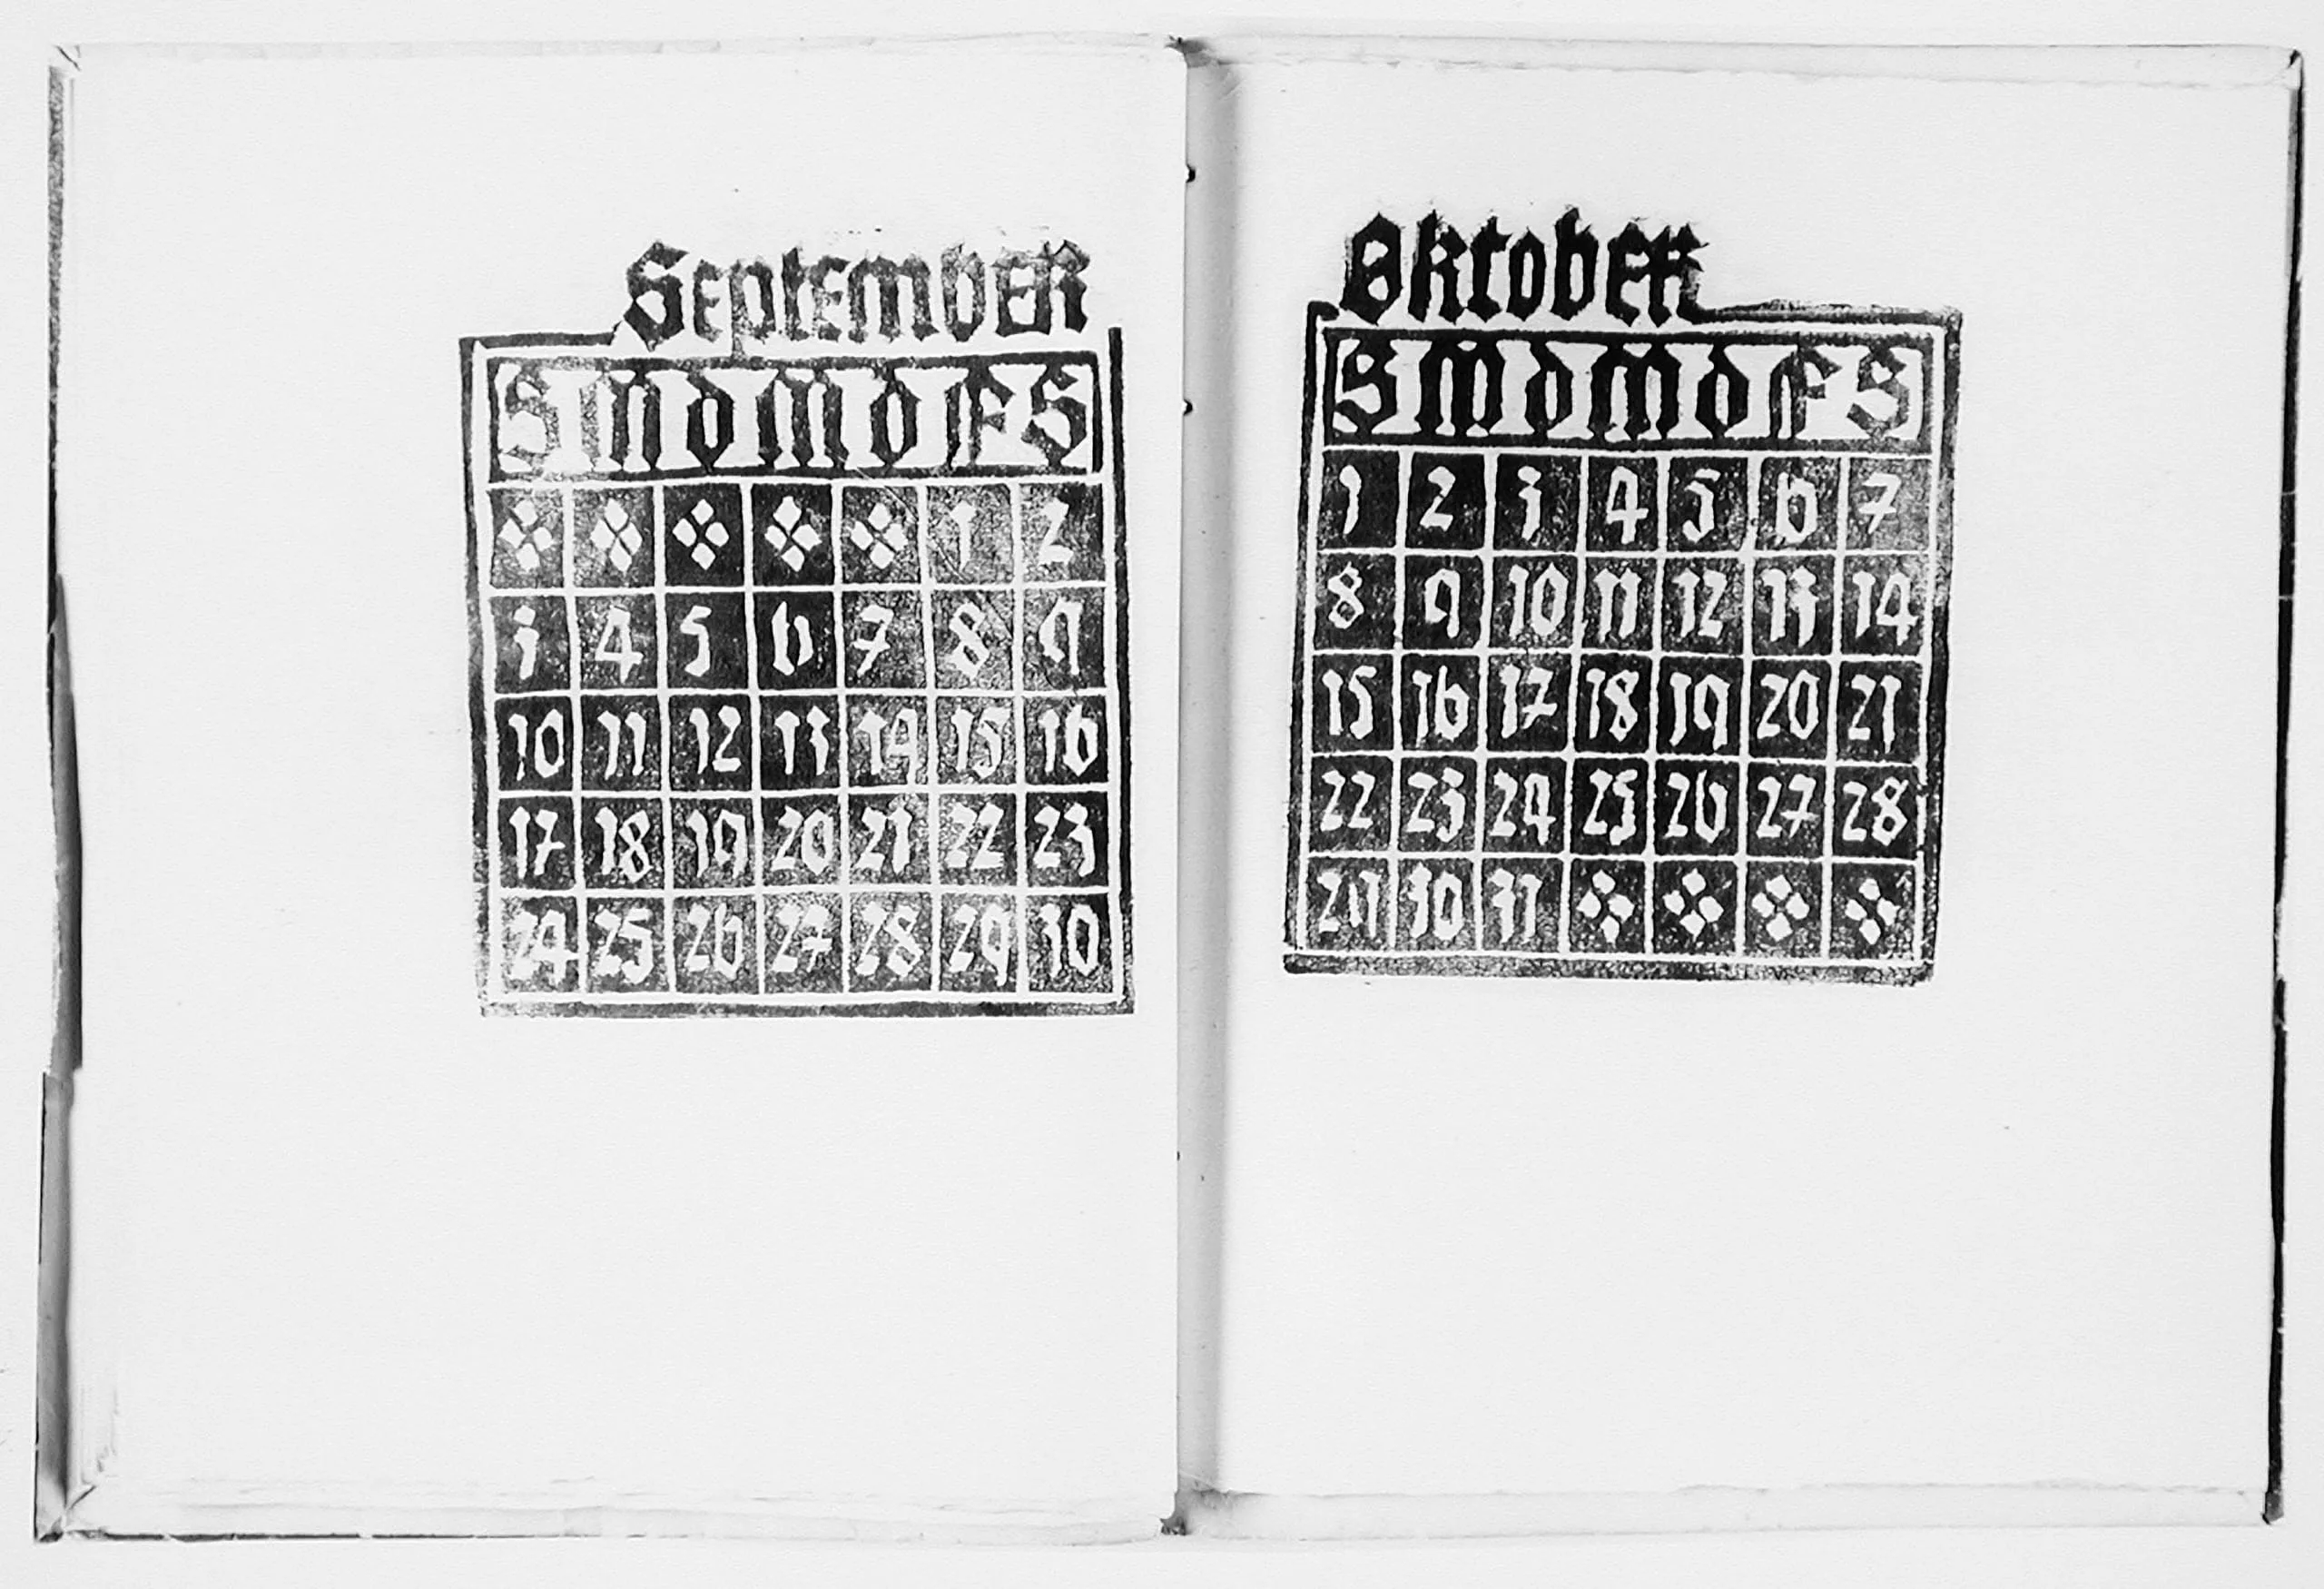 September
S M D M D F S
1 2
3 4 5 6 7 8 9
10 11 12 13 14 15 16
17 18 19 20 21 22 23
24 25 26 27 28 29 30
Oktober
S M D M D F S
1 2 3 4 5 6 7
8 9 10 11 12 13 14
15 16 17 18 19 20 21
22 23 24 25 26 27 28
29 30 31